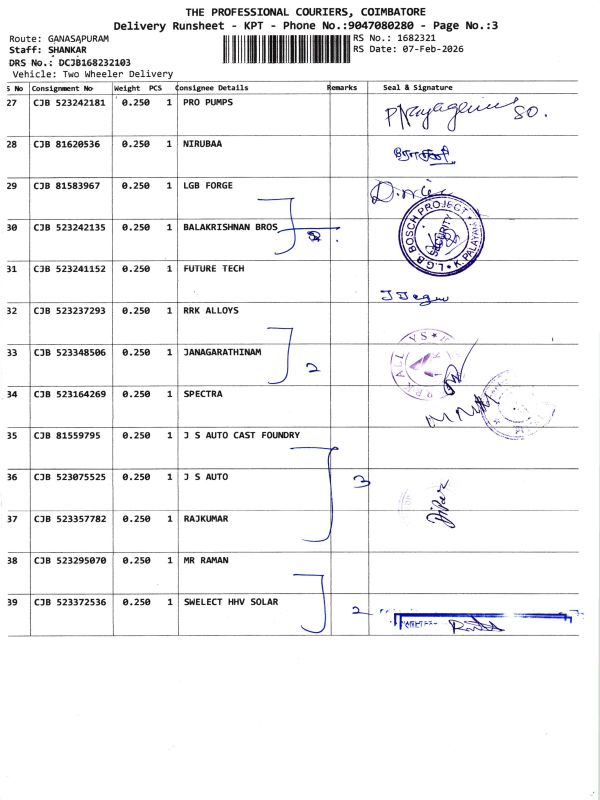 THE PROFESSIONAL COURIERS, COIMBATORE
Delivery Runsheet - KPT - Phone No.:9047080280 - Page No.:3
Route: GANASAPURAM
RS No.: 1682321
Staff: SHANKAR
RS Date: 07-Feb-2026
DRS No.: DCJB168232103
Vehicle: Two Wheeler Delivery
S No Consignment No Weight PCS Consignee Details Remarks Seal & Signature
27 CJB 523242181 0.250 1 PRO PUMPS
28 CJB 81620536 0.250 1 NIRUBAA
29 CJB 81583967 0.250 1 LGB FORGE
30 CJB 523242135 0.250 1 BALAKRISHNAN BROS
L.G.B BOSCH PROJECT * K. PALAYAM
SECURITY
31 CJB 523241152 0.250 1 FUTURE TECH
32 CJB 523237293 0.250 1 RRK ALLOYS
33 CJB 523348506 0.250 1 JANAGARATHINAM 2
34 CJB 523164269 0.250 1 SPECTRA
35 CJB 81559795 0.250 1 J S AUTO CAST FOUNDRY
36 CJB 523075525 0.250 1 J S AUTO 3
37 CJB 523357782 0.250 1 RAJKUMAR
38 CJB 523295070 0.250 1 MR RAMAN
39 CJB 523372536 0.250 1 SWELECT HHV SOLAR 2